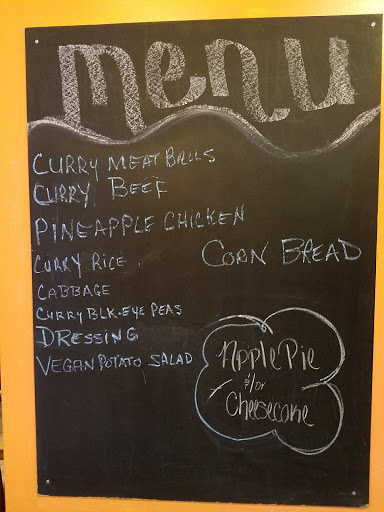 menu
CURRY MEAT BALLS
CURRY BEEF
PINEAPPLE CHICKEN
CURRY RICE
CORN BREAD
CABBAGE
CURRY BLK-EYE PEAS
DRESSING
VEGAN POTATO SALAD
Apple Pie
&/or
Cheesecake